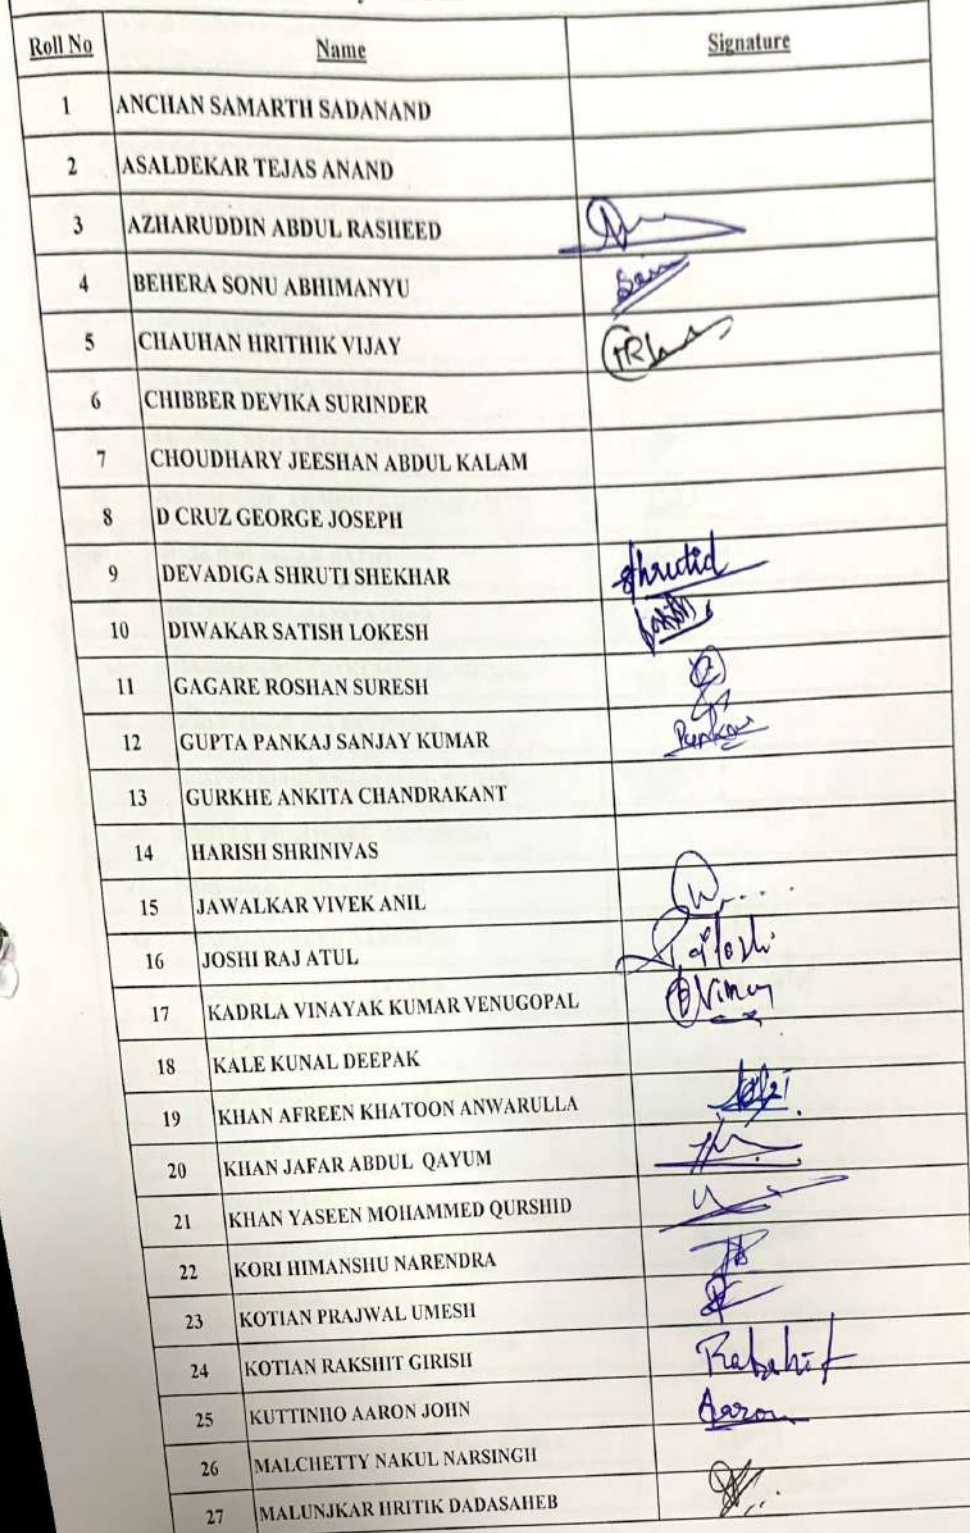 Roll No Name Signature
1 ANCHAN SAMARTH SADANAND
2 ASALDEKAR TEJAS ANAND
3 AZHARUDDIN ABDUL RASHEED
4 BEHERA SONU ABHIMANYU
5 CHAUHAN HRITHIK VIJAY
6 CHIBBER DEVIKA SURINDER
7 CHOUDHARY JEESHAN ABDUL KALAM
8 D CRUZ GEORGE JOSEPH
9 DEVADIGA SHRUTI SHEKHAR Shrutid
10 DIWAKAR SATISH LOKESH
11 GAGARE ROSHAN SURESH
12 GUPTA PANKAJ SANJAY KUMAR Pankaj
13 GURKHE ANKITA CHANDRAKANT
14 HARISH SHRINIVAS
15 JAWALKAR VIVEK ANIL
16 JOSHI RAJ ATUL
17 KADRLA VINAYAK KUMAR VENUGOPAL
18 KALE KUNAL DEEPAK
19 KHAN AFREEN KHATOON ANWARULLA
20 KHAN JAFAR ABDUL QAYUM
21 KHAN YASEEN MOHAMMED QURSHID
22 KORI HIMANSHU NARENDRA
23 KOTIAN PRAJWAL UMESH
24 KOTIAN RAKSHIT GIRISH Rakshit
25 KUTTINHO AARON JOHN Aaron
26 MALCHETTY NAKUL NARSINGH
27 MALUNJKAR HRITIK DADASAHEB